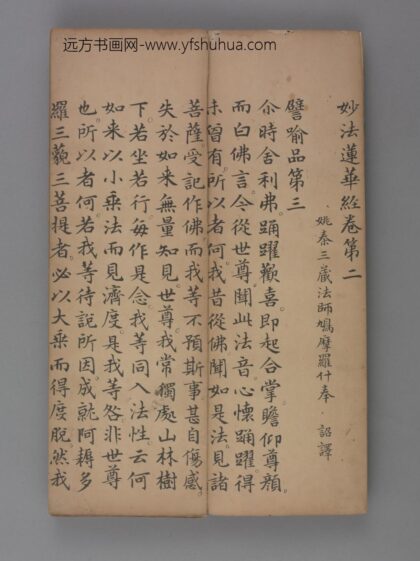 远方书画网-www.yfshuhua.com
妙法蓮華經卷第二
姚秦三藏法師鳩摩羅什奉 詔譯
譬喻品第三
尒時舍利弗踊躍歡喜即起合掌瞻仰尊顏
而白佛言今從世尊聞此法音心懷踊躍得
未曾有所以者何我昔從佛聞如是法見諸
菩薩受記作佛而我等不預斯事甚自傷感
失於如來無量知見世尊我常獨處山林樹
下若坐若行每作是念我等同入法性云何
如來以小乘法而見濟度是我等咎非世尊
也所以者何若我等待說所因成就阿耨多
羅三藐三菩提者必以大乘而得度脫然我